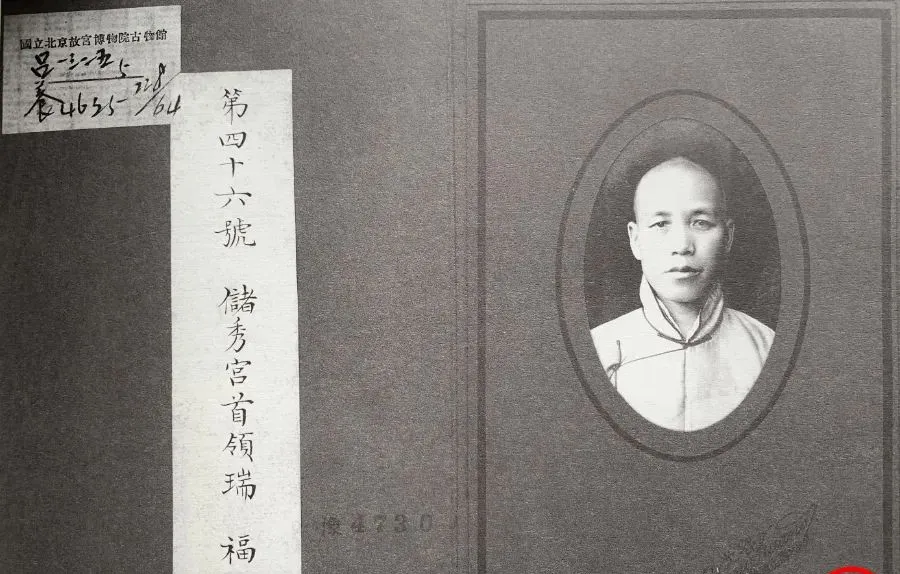 國立北京故宮博物院古物館
呂一三一五5
養4635 728/64
第四十六號 儲秀宮首領瑞 福
像4730